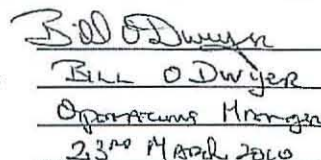 Bill O'Dwyer
BILL O DWYER
Operations Manager
23RD MARCH 2010